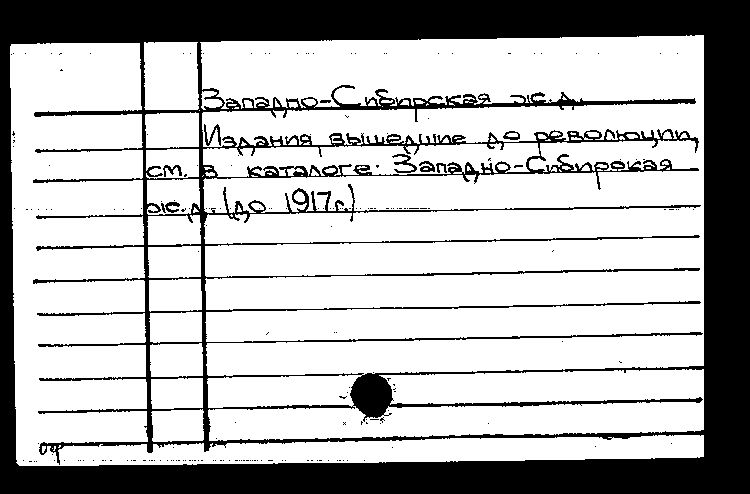 Западно-Сибирская ж.д.
Издания, вышедшие до революции,
см. в каталоге: Западно-Сибирская
ж.д. (до 1917г.)